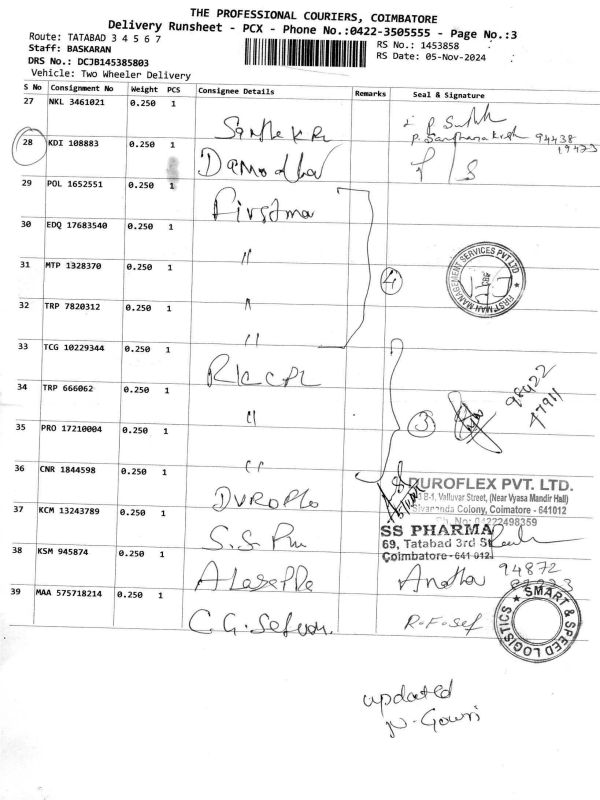 THE PROFESSIONAL COURIERS, COIMBATORE
Delivery Runsheet - PCX - Phone No.:0422-3505555 - Page No.:3
Route: TATABAD 3 4 5 6 7
RS No.: 1453858
Staff: BASKARAN
RS Date: 05-Nov-2024
DRS No.: DCJB145385803
Vehicle: Two Wheeler Delivery
S No Consignment No Weight PCS Consignee Details Remarks Seal & Signature
27 NKL 3461021 0.250 1
94438
28 KDI 108883 0.250 1 Damodhar
29 POL 1652551 0.250 1 Firstma
30 EDQ 17683540 0.250 1 "
31 MTP 1328370 0.250 1 " 4
FIRSTMAN MANAGEMENT SERVICES PVT LTD
CBE
32 TRP 7820312 0.250 1 "
33 TCG 10229344 0.250 1 RKCPL
34 TRP 666062 0.250 1 " 3 98422
47911
35 PRO 17210004 0.250 1 "
36 CNR 1844598 0.250 1 DUROFLE
DUROFLEX PVT. LTD.
Valluvar Street, (Near Vyasa Mandir Hall)
Sivananda Colony, Coimatore - 641012
Ph. No: 04222498359
37 KCM 13243789 0.250 1 S.S. Ph
SS PHARMA
69, Tatabad 3rd St
Coimbatore-641 012
38 KSM 945874 0.250 1 94872
39 MAA 575718214 0.250 1 C.G. Selvan. R.F. Sef
SMART & SPEED LOGISTICS
updated
N. Gowri